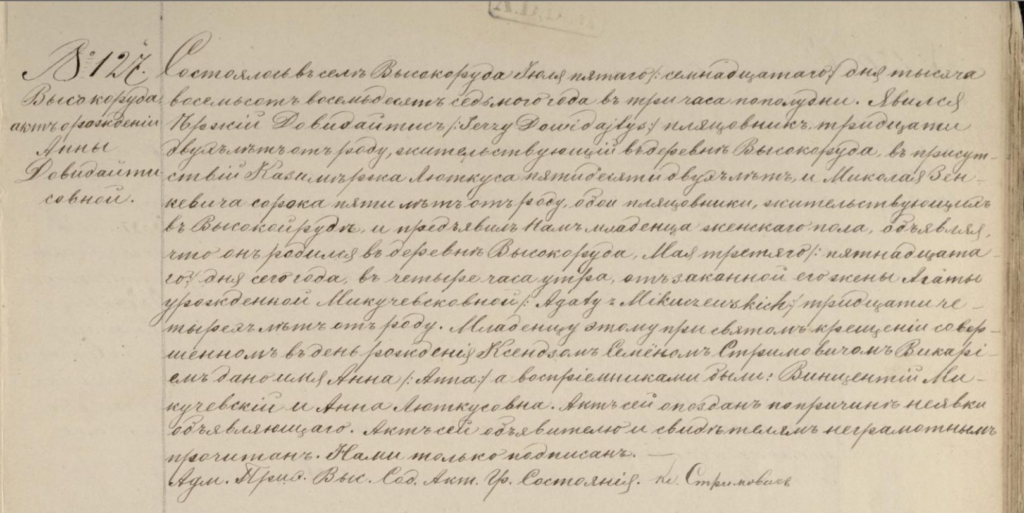 № 127.
Высокоруда
актъ о рожденіи
Анны
Довидайти
совной.
Состоялось въ селѣ Высокоруда Іюля пятаго /: семнадцатаго :/ дня тысяча
восемьсотъ восемьдесятъ седьмого года въ три часа пополудни. Явился
Ержій Довидайтисъ /: Jerzy Dowidajtys :/ пляцовникъ, тридцати
двухъ лѣтъ отъ роду, жительствующій въ деревнѣ Высокоруда, въ присут-
ствіи Казимѣржа Люткуса пятидесяти двухъ лѣтъ, и Миколая Зен-
кевича сорока пяти лѣтъ отъ роду, обои пляцовники, жительствующихъ
въ Высокойрудѣ, и предъявилъ Намъ младенца женскаго пола, объявляя,
что онъ родился въ деревнѣ Высокоруда, Мая третяго /: пятнадцата-
го :/ дня сего года, въ четыре часа утра, отъ законной его жены Агаты
урожденной Микучевсковной /: Agaty z Mikuczewskich :/ тридцати че-
тырехъ лѣтъ отъ роду. Младенцу этому при святомъ крещеніи совер-
шенномъ въ день рожденія Ксендзомъ Семёномъ Стримовичомъ Викарі-
емъ дано имя Анна /: Anna :/ а воспріемниками были: Винцентій Ми-
кучевскій и Анна Люткусовна. Актъ сей опозданъ по причинѣ неявки
объявляющаго. Актъ сей объявителю и свидѣтелямъ неграмотнымъ
прочитанъ. Нами только подписанъ. —
Адм. Прих. Выс. Сод. Акт. Гр. Состоянія. кс. Стримовичъ